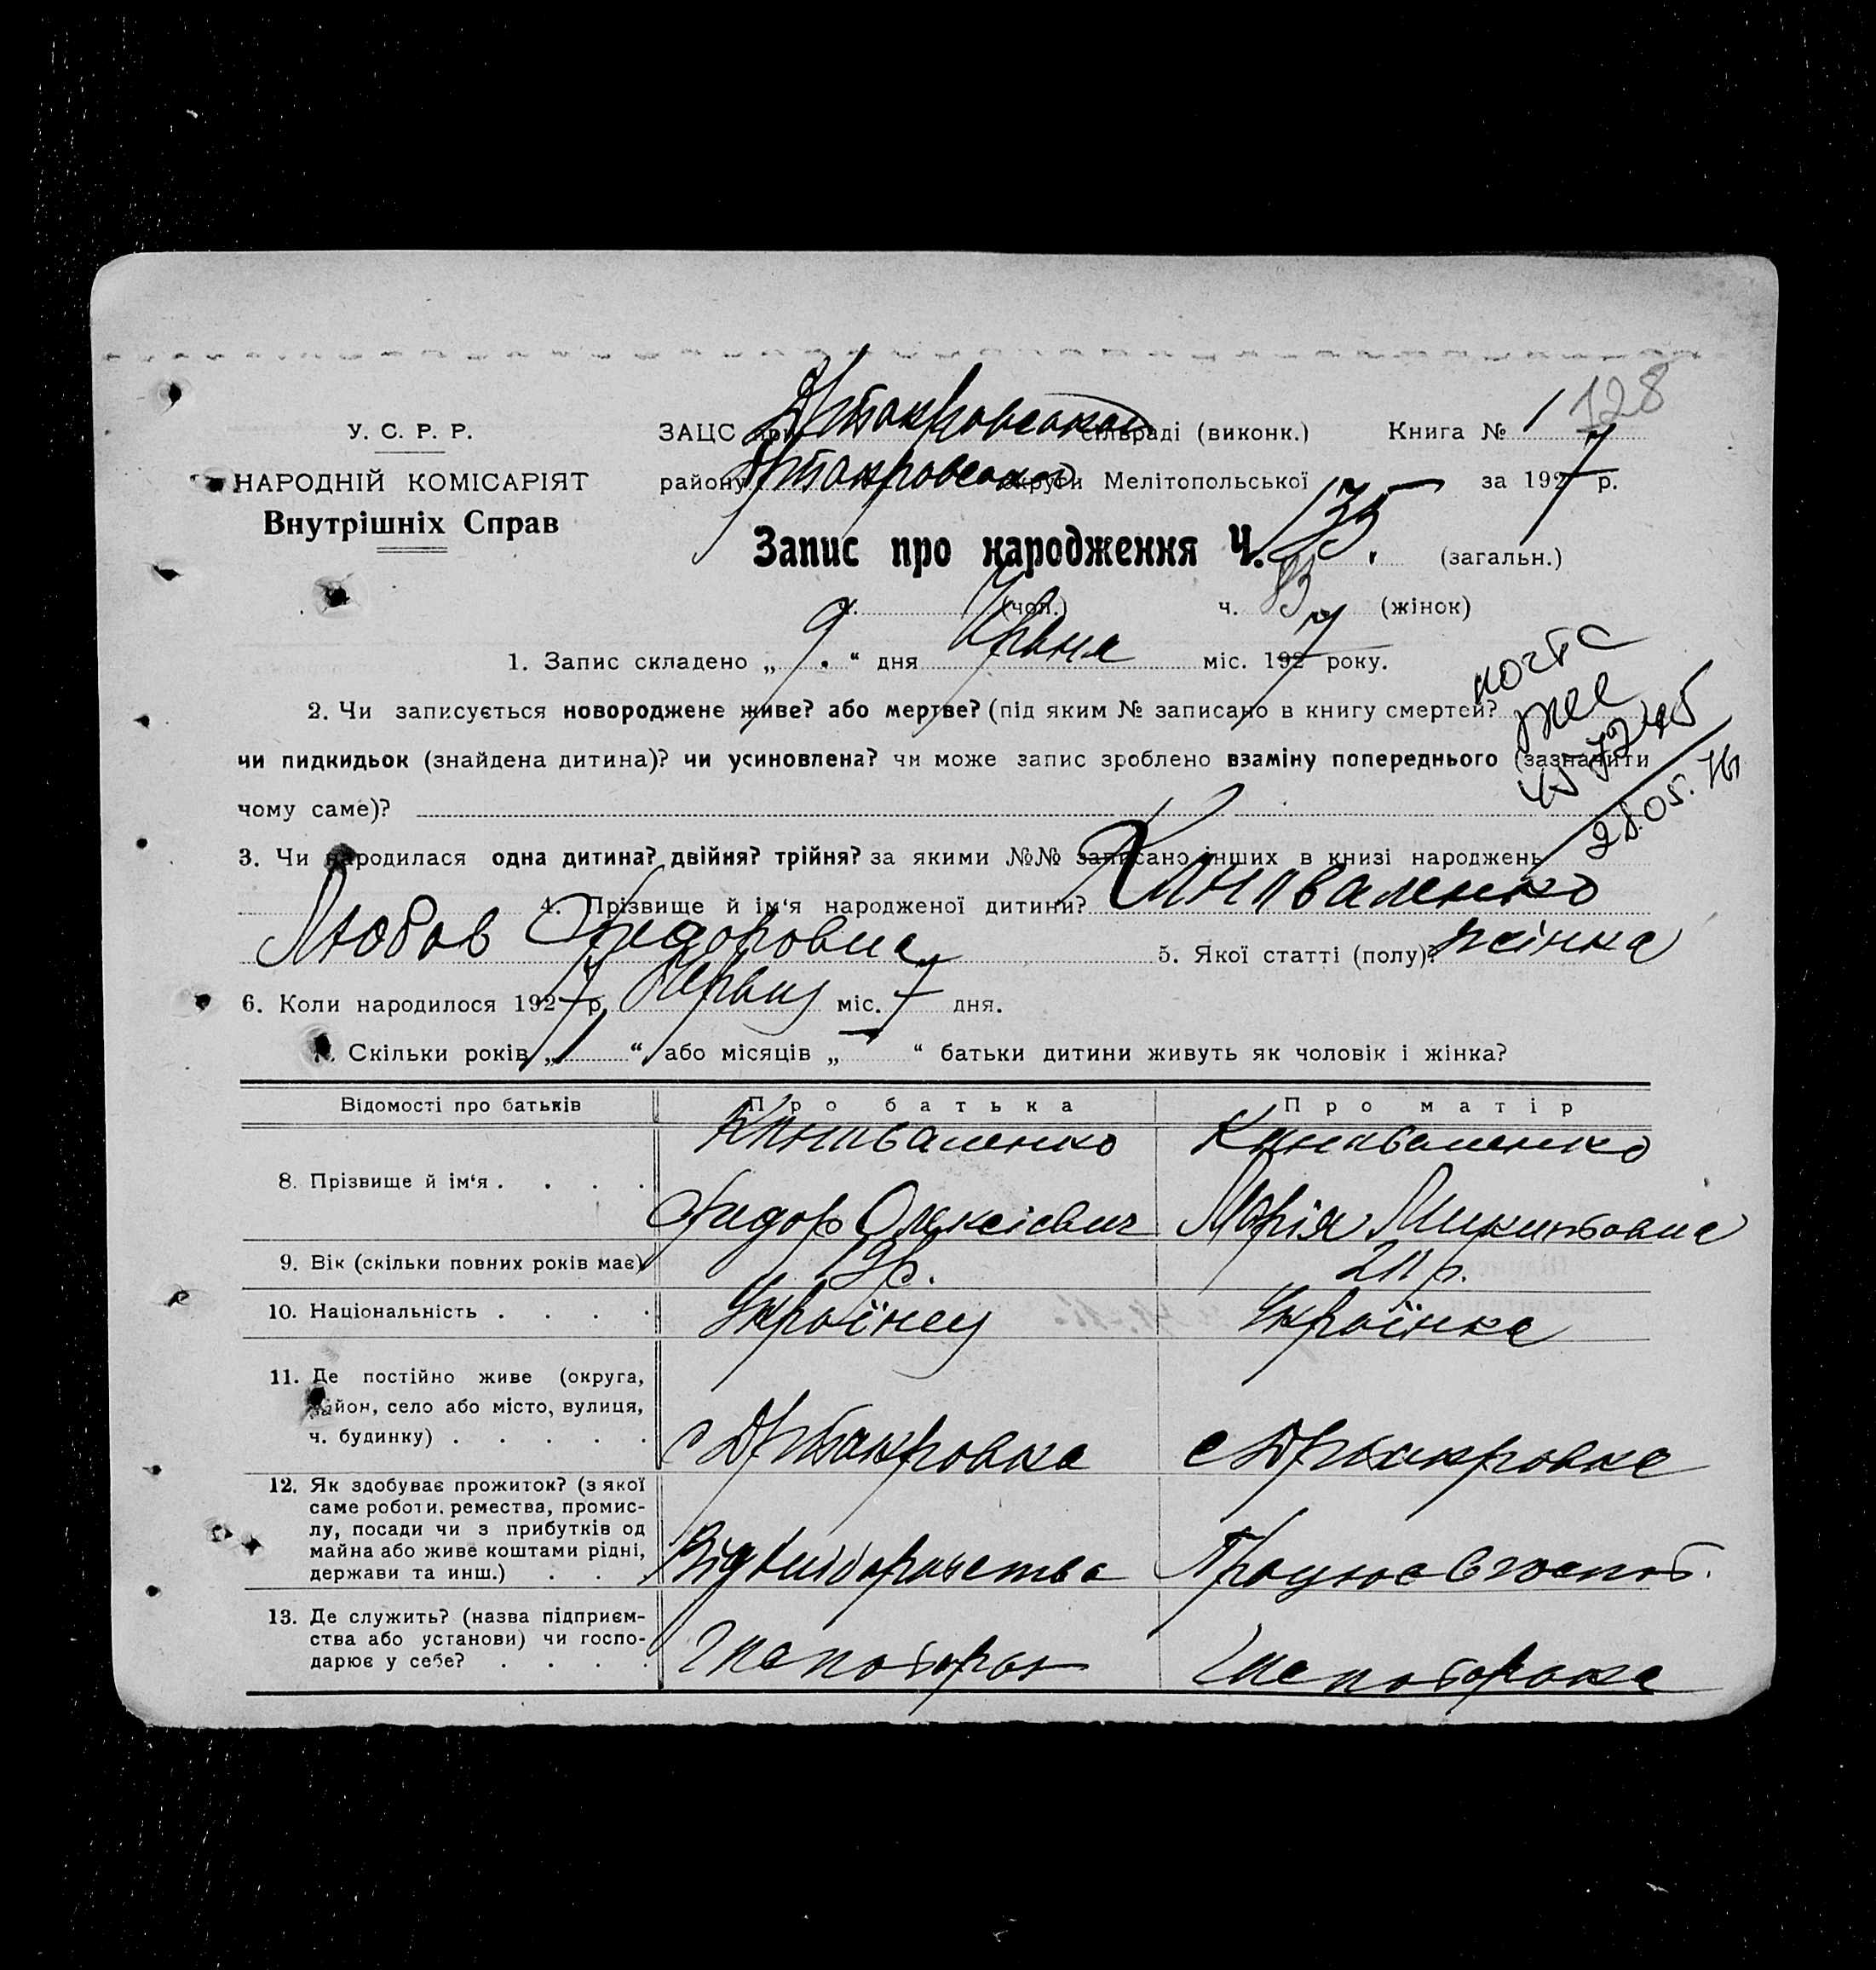 128
У. С. Р. Р.
НАРОДНІЙ КОМІСАРІЯТ
Внутрішніх Справ
ЗАЦС при сільраді (виконк.) Книга № 1
району округи Мелітопольської за 1927 р.
Запис про народження Ч. 135 (загальн.)
ч. (чол.) ч. 83 (жінок)
1. Запис складено „ 9 “ дня Червня міс. 1927 року.
2. Чи записується новороджене живе? або мертве? (під яким № записано в книгу смертей?
чи пидкидьок (знайдена дитина)? чи усиновлена? чи може запис зроблено взаміну попереднього (зазначити
чому саме)?
28.05.76
3. Чи народилася одна дитина? двійня? трійня? за якими №№ записано інших в книзі народжень
4. Прізвище й ім‘я народженої дитини?
Любов Фидоровна 5. Якої статті (полу)? жінка
6. Коли народилося 1927 р. Червня міс. 7 дня.
7. Скільки років „ 1 “ або місяців „ — “ батьки дитини живуть як чоловік і жінка?
Відомості про батьків Про батька Про матір
8. Прізвище й ім‘я . . . .
Фидор Олексієвич Марія Микитовна
9. Вік (скільки повних років має)
10. Національність . . . . Українец Українка
11. Де постійно живе (округа,
район, село або місто, вулиця,
ч. будинку) . . . . .
12. Як здобуває прожиток? (з якої
саме роботи, ремества, промис-
лу, посади чи з прибутків од
майна або живе коштами рідні,
держави та инш.) . . . Від хліборобства Працює в господ.
13. Де служить? (назва підприєм-
ства або установи) чи госпо-
дарює у себе? . . . .